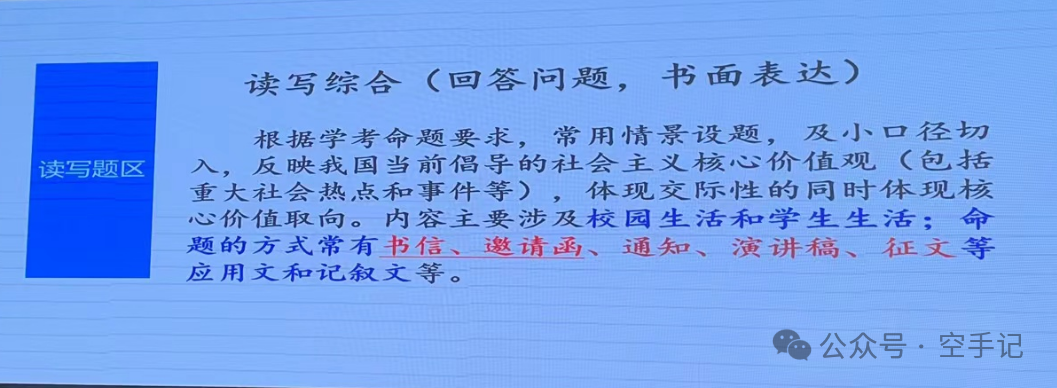 读写综合（回答问题，书面表达）
读写题区
根据学考命题要求，常用情景设题，及小口径切
入，反映我国当前倡导的社会主义核心价值观（包括
重大社会热点和事件等），体现交际性的同时体现核
心价值取向。内容主要涉及校园生活和学生生活；命
题的方式常有书信、邀请函、通知、演讲稿、征文等
应用文和记叙文等。
公众号·空手记